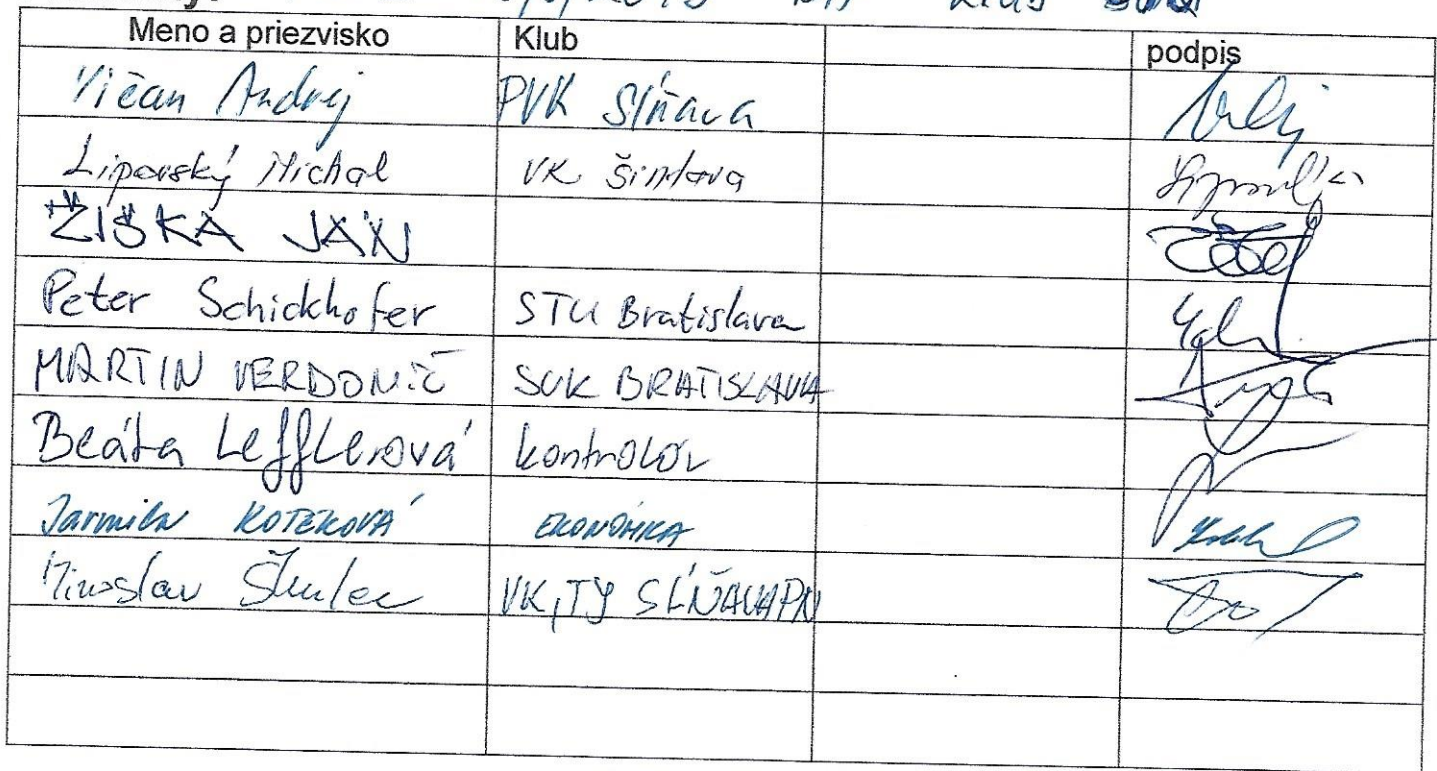 Meno a priezvisko Klub podpis
Vičan Andrej PVK Sĺňava
Lipovský Michal VK Šintava
ŽIŠKA JÁN
Peter Schickhofer STU Bratislava
MARTIN VERDONIČ SVK BRATISLAVA
Beáta Lefflerová kontrolór
Jarmila KOTEKOVÁ EKONÓMKA
Miroslav VK,TJ SĹŇAVA PN